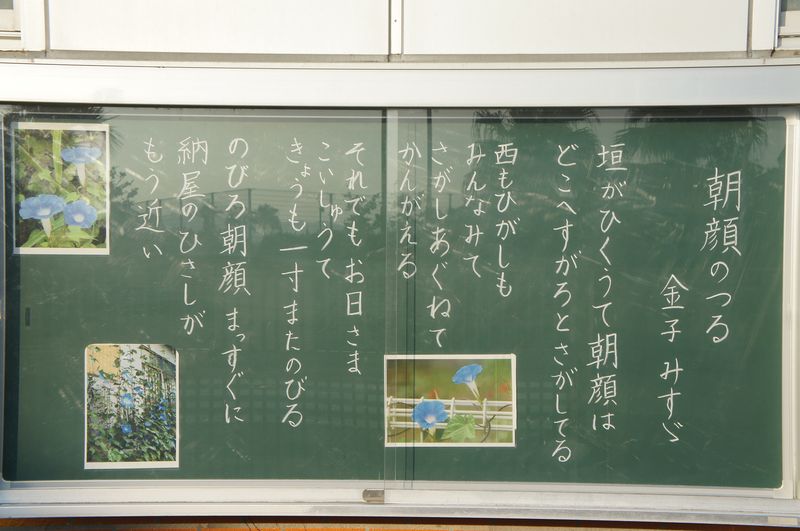 朝顔のつる
金子 みすゞ
垣がひくうて朝顔は
どこへすがろとさがしてる
西もひがしも
みんなみて
さがしあぐねて
かんがえる
それでもお日さま
こいしゅうて
きょうも一寸またのびる
のびろ朝顔 まっすぐに
納屋のひさしが
もう近い